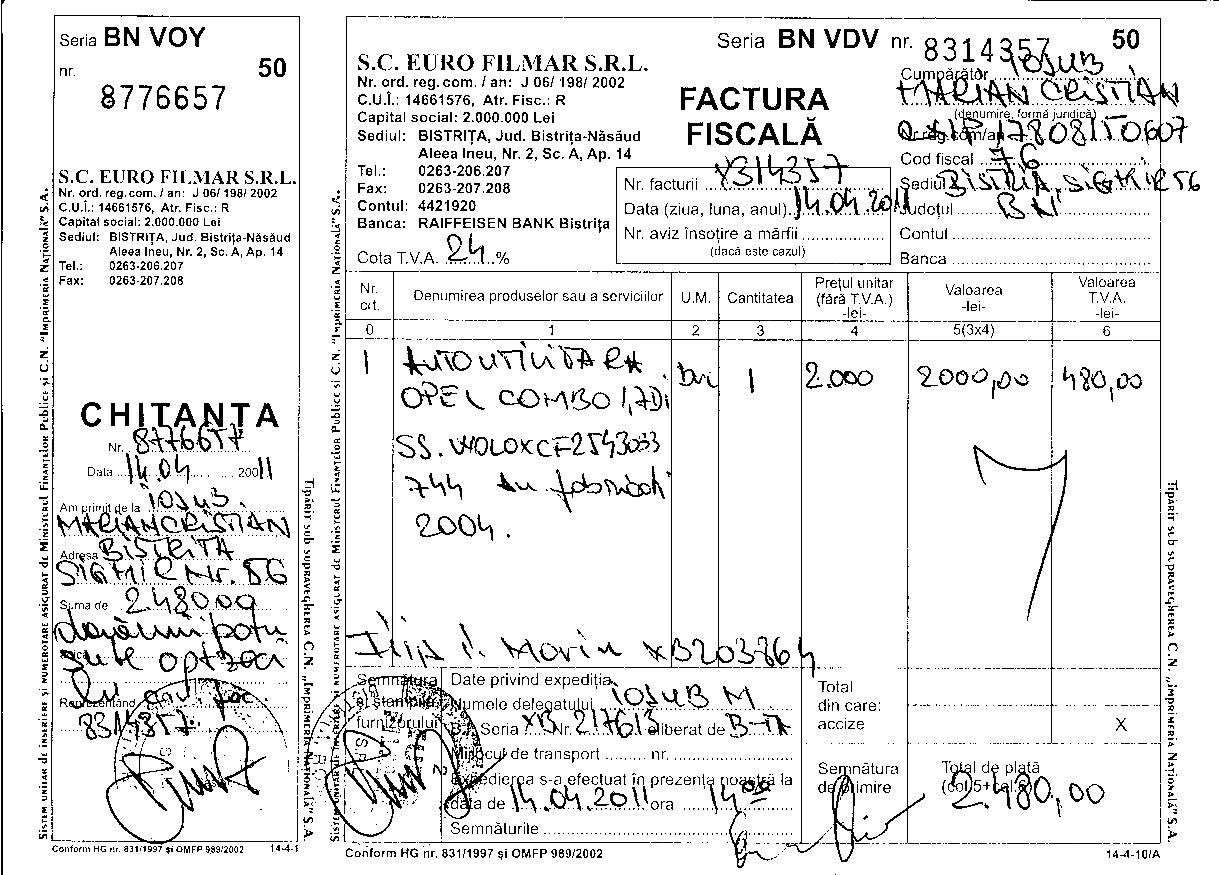 Seria BN VOY
nr. 50
8776657
S.C. EURO FILMAR S.R.L.
Nr. ord. reg.com. / an: J 06/ 198/ 2002
C.U.Î.: 14661576, Atr. Fisc.: R
Capital social: 2.000.000 Lei
Sediul: BISTRIȚA, Jud. Bistrița-Năsăud
Aleea Ineu, Nr. 2, Sc. A, Ap. 14
Tel.: 0263-206.207
Fax: 0263-207.208
CHITANȚA
Nr. 8776657
Data 14.04 2011
Am primit de la IOSUB
MARIAN CRISTIAN
Adresa BISTRITA
SIGMIR Nr. 56
Suma de 2.480,00
două mii patru
sute optzeci
Reprezentând
8314357
Conform HG nr. 831/1997 și OMFP 989/2002 14-4-1
SISTEM UNITAR DE ÎNSERIERE ȘI NUMEROTARE ASIGURAT de MINISTERUL FINANȚELOR PUBLICE și C.N. "IMPRIMERIA NAȚIONALĂ" S.A.
Tipărit sub supravegherea C.N. „IMPRIMERIA NAȚIONALĂ" S.A.
Seria BN VDV nr. 8314357 50
S.C. EURO FILMAR S.R.L.
Nr. ord. reg.com. / an: J 06/ 198/ 2002
C.U.Î.: 14661576, Atr. Fisc.: R
Capital social: 2.000.000 Lei
Sediul: BISTRIȚA, Jud. Bistrița-Năsăud
Aleea Ineu, Nr. 2, Sc. A, Ap. 14
Tel.: 0263-206.207
Fax: 0263-207.208
Contul: 4421920
Banca: RAIFFEISEN BANK Bistrița
Cota T.V.A. 24 %
FACTURA
FISCALĂ
Nr. facturii 8314357
Data (ziua, luna, anul) 14.04.2011
Nr. aviz însoțire a mărfii
(dacă este cazul)
Cumpărător IOSUB
MARIAN CRISTIAN
(denumire, formă juridică)
Nr.reg.com/an 17808150607
Cod fiscal 76
Sediul BISTRITA, SIGMIR 56
Județul BN
Contul
Banca
Nr. crt. Denumirea produselor sau a serviciilor U.M. Cantitatea Prețul unitar (fără T.V.A.) -lei- Valoarea -lei- Valoarea T.V.A. -lei-
0 1 2 3 4 5(3x4) 6
1 AUTOUTILITARA Buc 1 2.000 2000,00 480,00
OPEL COMBO 1,7Di
SS. W0L0XCF2543033
744 an fabricati
2004.
Ilip I. Marin XB203764
Semnătura
și ștampila
furnizorului
Date privind expediția
Numele delegatului IOSUB M
B.I. Seria XB Nr. 217613 eliberat de B-TA
Mijlocul de transport nr.
Expedierea s-a efectuat în prezența noastră la
data de 14.04.2011 ora 14
Semnăturile
Total
din care:
accize X
Semnătura
de primire
Total de plată
(col.5+col.6)
2.480,00
Conform HG nr. 831/1997 și OMFP 989/2002 14-4-10/A
SISTEM UNITAR DE ÎNSERIERE ȘI NUMEROTARE ASIGURAT de MINISTERUL FINANȚELOR PUBLICE și C.N. "IMPRIMERIA NAȚIONALĂ" S.A.
Tipărit sub supravegherea C.N. „IMPRIMERIA NAȚIONALĂ" S.A.